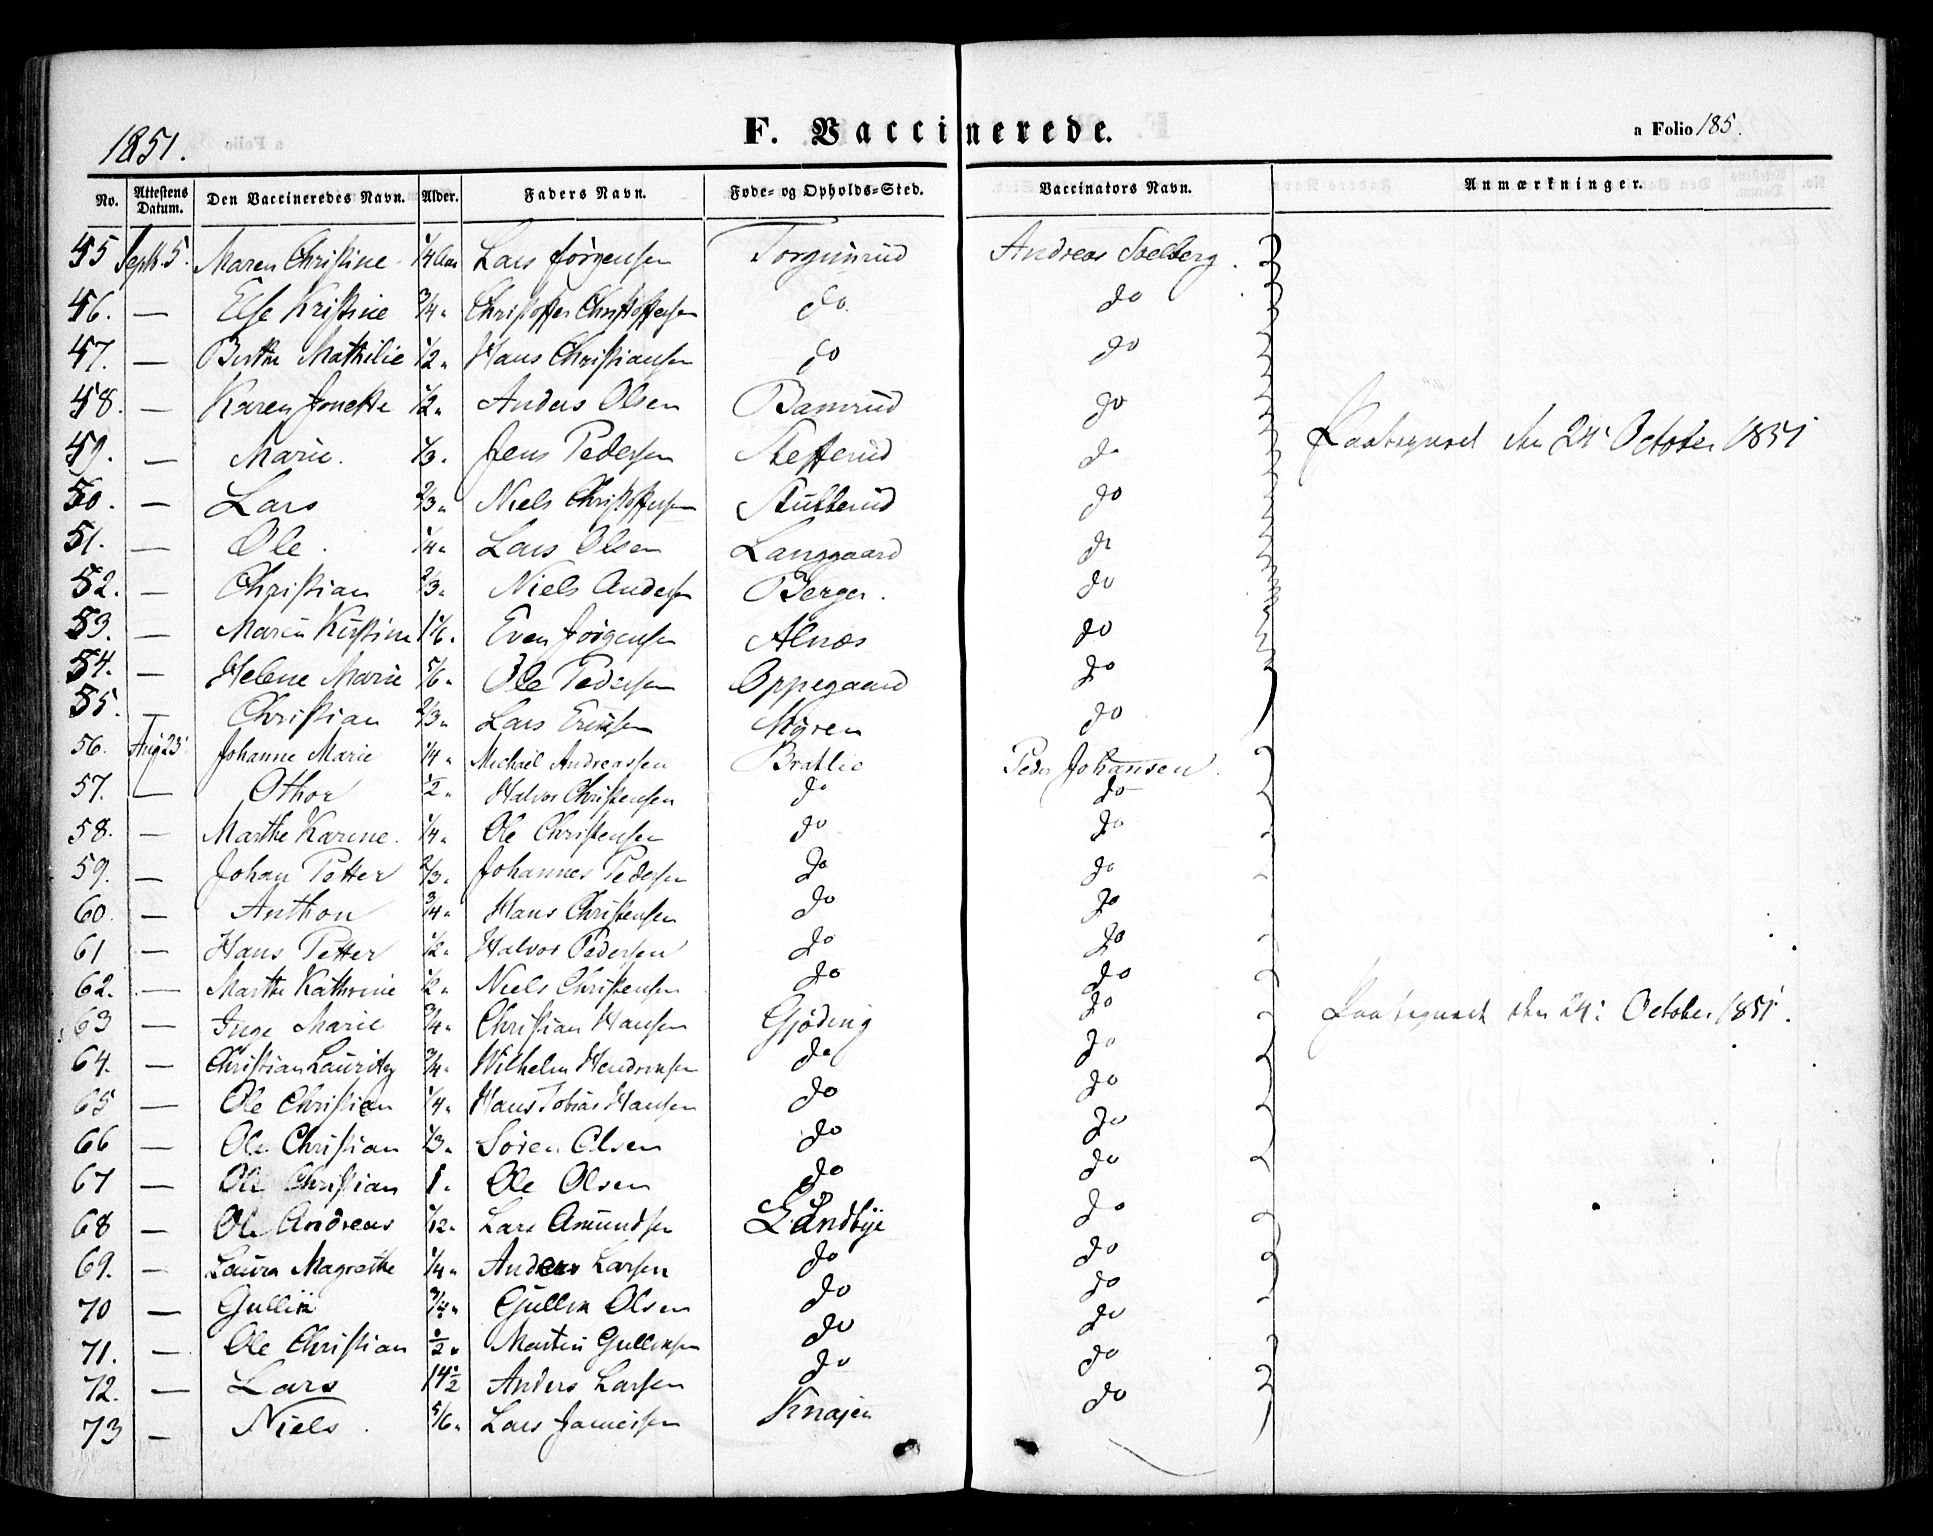 1851.
F. Vaccinerede.
a Folio 185.
No. Attestens Datum. Den Vaccineredes Navn. Alder. Faders Navn. Føde- og Opholds-Sted. Vaccinators Navn. Anmærkninger.
45 Sept. 5. Maren Christine 1/4 Aar Lars Jørgensen Torgunrud Andreas
46. — Else Kristine 3/4 " Christoffer Christoffersen do. do
47. — Berthe Mathilie 1/2 " Hans Christiansen do do
48. — Karen Jonette 1/2 " Anders Olsen do
49. — Marie. 1/3 " Jens Pedersen do Paategnet den 24 October 1851
50. — Lars 2/3 " Niels Christoffersen Stubberud do
51. — Ole. 1/4 " Lars Olsen Langgaard do
52. — Christian 2/3 " Niels Andersen Berger. do
53. — Maren Kirstine 1 1/6 " Even Jørgensen Alnæs do
54. — Helene Marie 5/6 " Ole Pedersen Oppegaard do
55. — Christian 2/3 " Lars Eriksen Myren do
56. Aug 25 Johanne Marie 1/4 " Michael Andreassen Bratlie Peder Johansen.
57. — Othor 1/2 " Halvor Christensen do do
58. — Marthe Karine. 1/4 " Ole Christensen do do
59. — Johan Petter 2/3 " Johannes Pedersen do do
60. — Anthon 3/4 " Hans Christensen do do
61 — Hans Petter 1/2 " Halvor Pedersen do do
62. — Marthe Kathrine 1/2 " Niels Christensen do do
63 — Inge Marie 3/4 " Christian Hansen Gjøding do Paategnet den 24: October 1851.
64. — Christian Lauritz 3/4 " Wilhelm Hendriksen do do
65 — Ole Christian 1/4 " Hans Tobias Hansen do do
66 — Ole Christian 1/3 " Søren Olsen do do
67 — Ole Christian 1 " Ole Olsen do do
68 — Ole Andreas 7/12 " Lars Amundsen Sandbye do
69. — Laura Magrethe 1/4 " Anders Larsen do do
70 — Gullik 3/4 " Gullik Olsen do do
71. — Ole Christian 1/2 " Martin Gulliksen do do
72. — Lars 14 1/2 Anders Larsen do do
73 — Niels. 5/6 " Lars Jameissen Knajen do